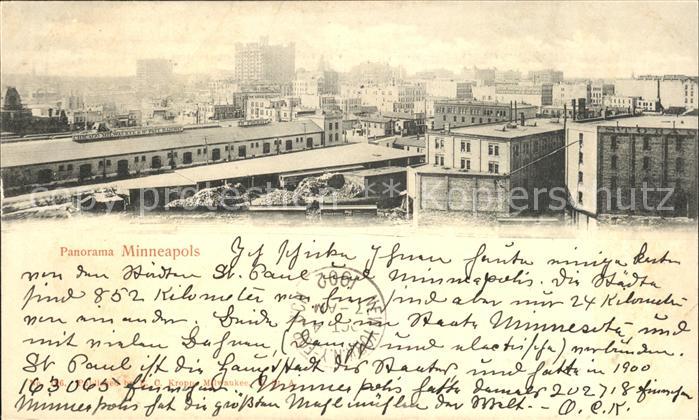 CHICAGO MILWAUKEE & ST PAUL RAILWAY
copyright protection ** Kopierschutz
Panorama Minneapols
Ich schicke Ihnen heute einige Karten
von den Städten St. Paul und Minneapolis. Die Städte
sind 852 Kilometer von hier und aber nur 24 Kilometer
von einander. Beide sind im Staate Minnesota und
mit vielen Bahnen, (Dampf und electrische) verbunden.
St. Paul ist die Hauptstadt des Staates und hatte in 1900
163065 Einwohner. Minneapolis hatte damals 202718 Einwohner
Minneapolis hat die größten Mehlmühlen der Welt. O.C.K.
E. C. Kropp, Milwaukee
1900
7 AM